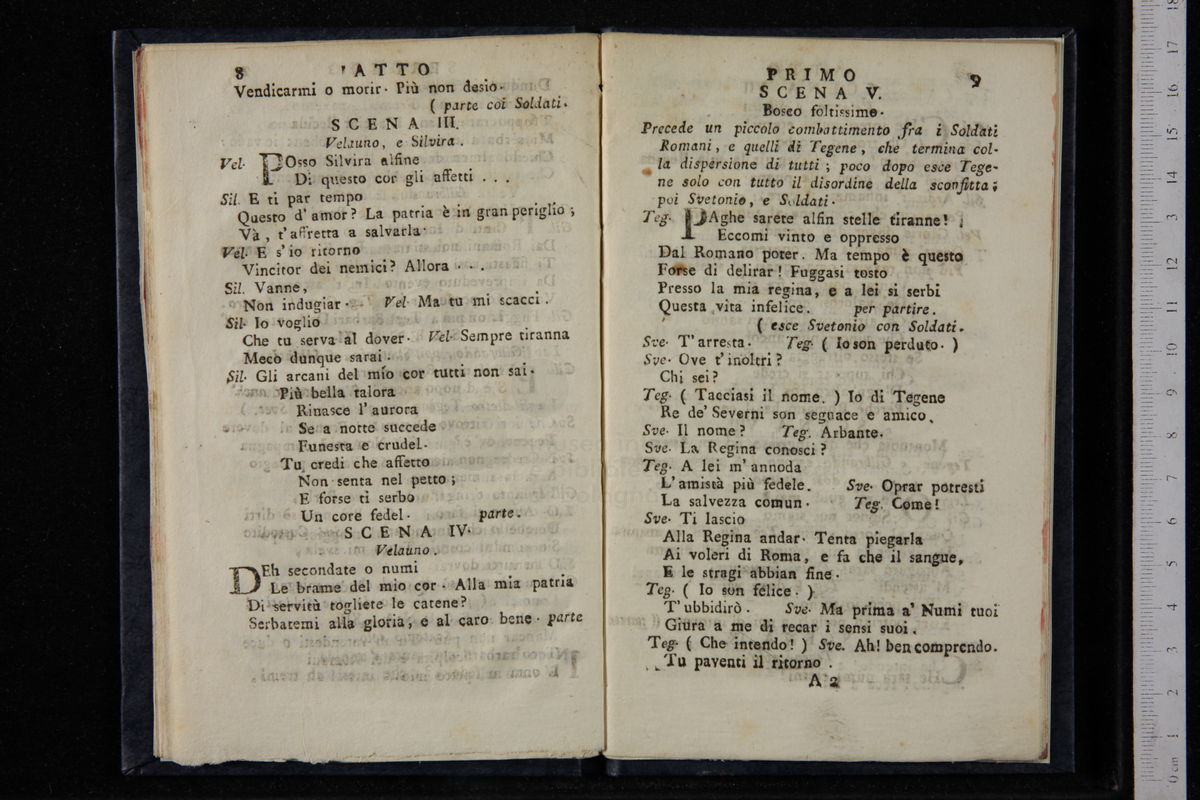 8 ATTO
Vendicarmi o morir. Più non desio.
( parte coi Soldati.
SCENA III.
Velauno, e Silvira.
Vel. POsso Silvira alfine
Di questo cor gli affetti . . .
Sil. E ti par tempo
Questo d'amor? La patria è in gran periglio ;
Và, t'affretta a salvarla.
Vel. E s'io ritorno
Vincitor dei nemici? Allora . . .
Sil. Vanne,
Non indugiar. Vel. Ma tu mi scacci.
Sil. Io voglio
Che tu serva al dover. Vel. Sempre tiranna
Meco dunque sarai.
Sil. Gli arcani del mio cor tutti non sai.
Più bella talora
Rinasce l'aurora
Se a notte succede
Funesta e crudel.
Tu credi che affetto
Non senta nel petto ;
E forse ti serbo
Un core fedel. parte.
SCENA IV.
Velauno.
DEh secondate o numi
Le brame del mio cor. Alla mia patria
Di servitù togliete le catene?
Serbatemi alla gloria, e al caro bene. parte
PRIMO 9
SCENA V.
Bosco foltissimo.
Precede un piccolo combattimento fra i Soldati
Romani, e quelli di Tegene, che termina col-
la dispersione di tutti ; poco dopo esce Tege-
ne solo con tutto il disordine della sconfitta ;
poi Svetonio, e Soldati.
Teg. PAghe sarete alfin stelle tiranne!
Eccomi vinto e oppresso
Dal Romano poter. Ma tempo è questo
Forse di delirar! Fuggasi tosto
Presso la mia regina, e a lei si serbi
Questa vita infelice. per partire.
( esce Svetonio con Soldati.
Sve. T'arresta. Teg. ( Io son perduto. )
Sve. Ove t'inoltri?
Chi sei?
Teg. ( Tacciasi il nome. ) Io di Tegene
Re de' Severni son seguace e amico.
Sve. Il nome? Teg. Arbante.
Sve. La Regina conosci?
Teg. A lei m'annoda
L'amistà più fedele. Sve. Oprar potresti
La salvezza comun. Teg. Come!
Sve. Ti lascio
Alla Regina andar. Tenta piegarla
Ai voleri di Roma, e fa che il sangue,
E le stragi abbian fine.
Teg. ( Io son felice. )
T'ubbidirò. Sve. Ma prima a' Numi tuoi
Giura a me di recar i sensi suoi.
Teg. ( Che intendo! ) Sve. Ah! ben comprendo.
Tu paventi il ritorno.
A 2